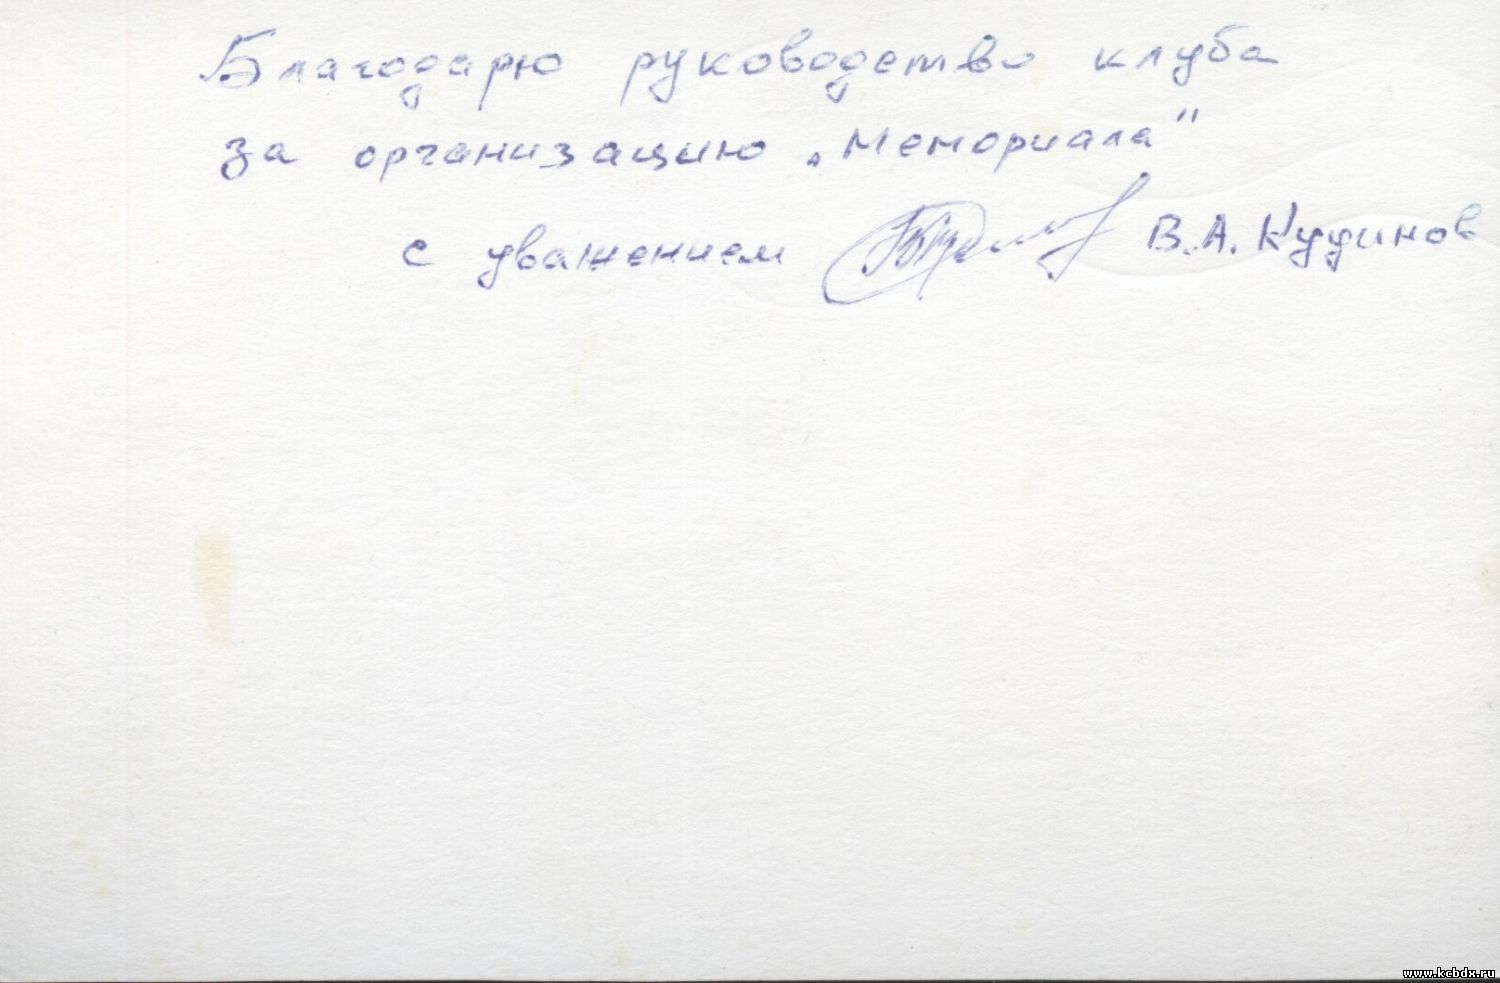 Благодарю руководство клуба
за организацию „Мемориала"
с уважением В.А. Кудинов
www.kcbdx.ru